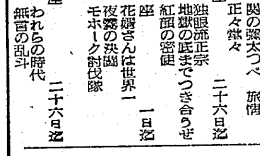 関の弥太つぺ　旅情
正々堂々
二十六日迄
独眼流正宗
地獄の底までつき合うぜ
紅顔の密使
座　一日迄
花嫁さんは世界一
夜霧の決闘
モホーク討伐隊
座　二十六日迄
われらの時代
無言の乱斗